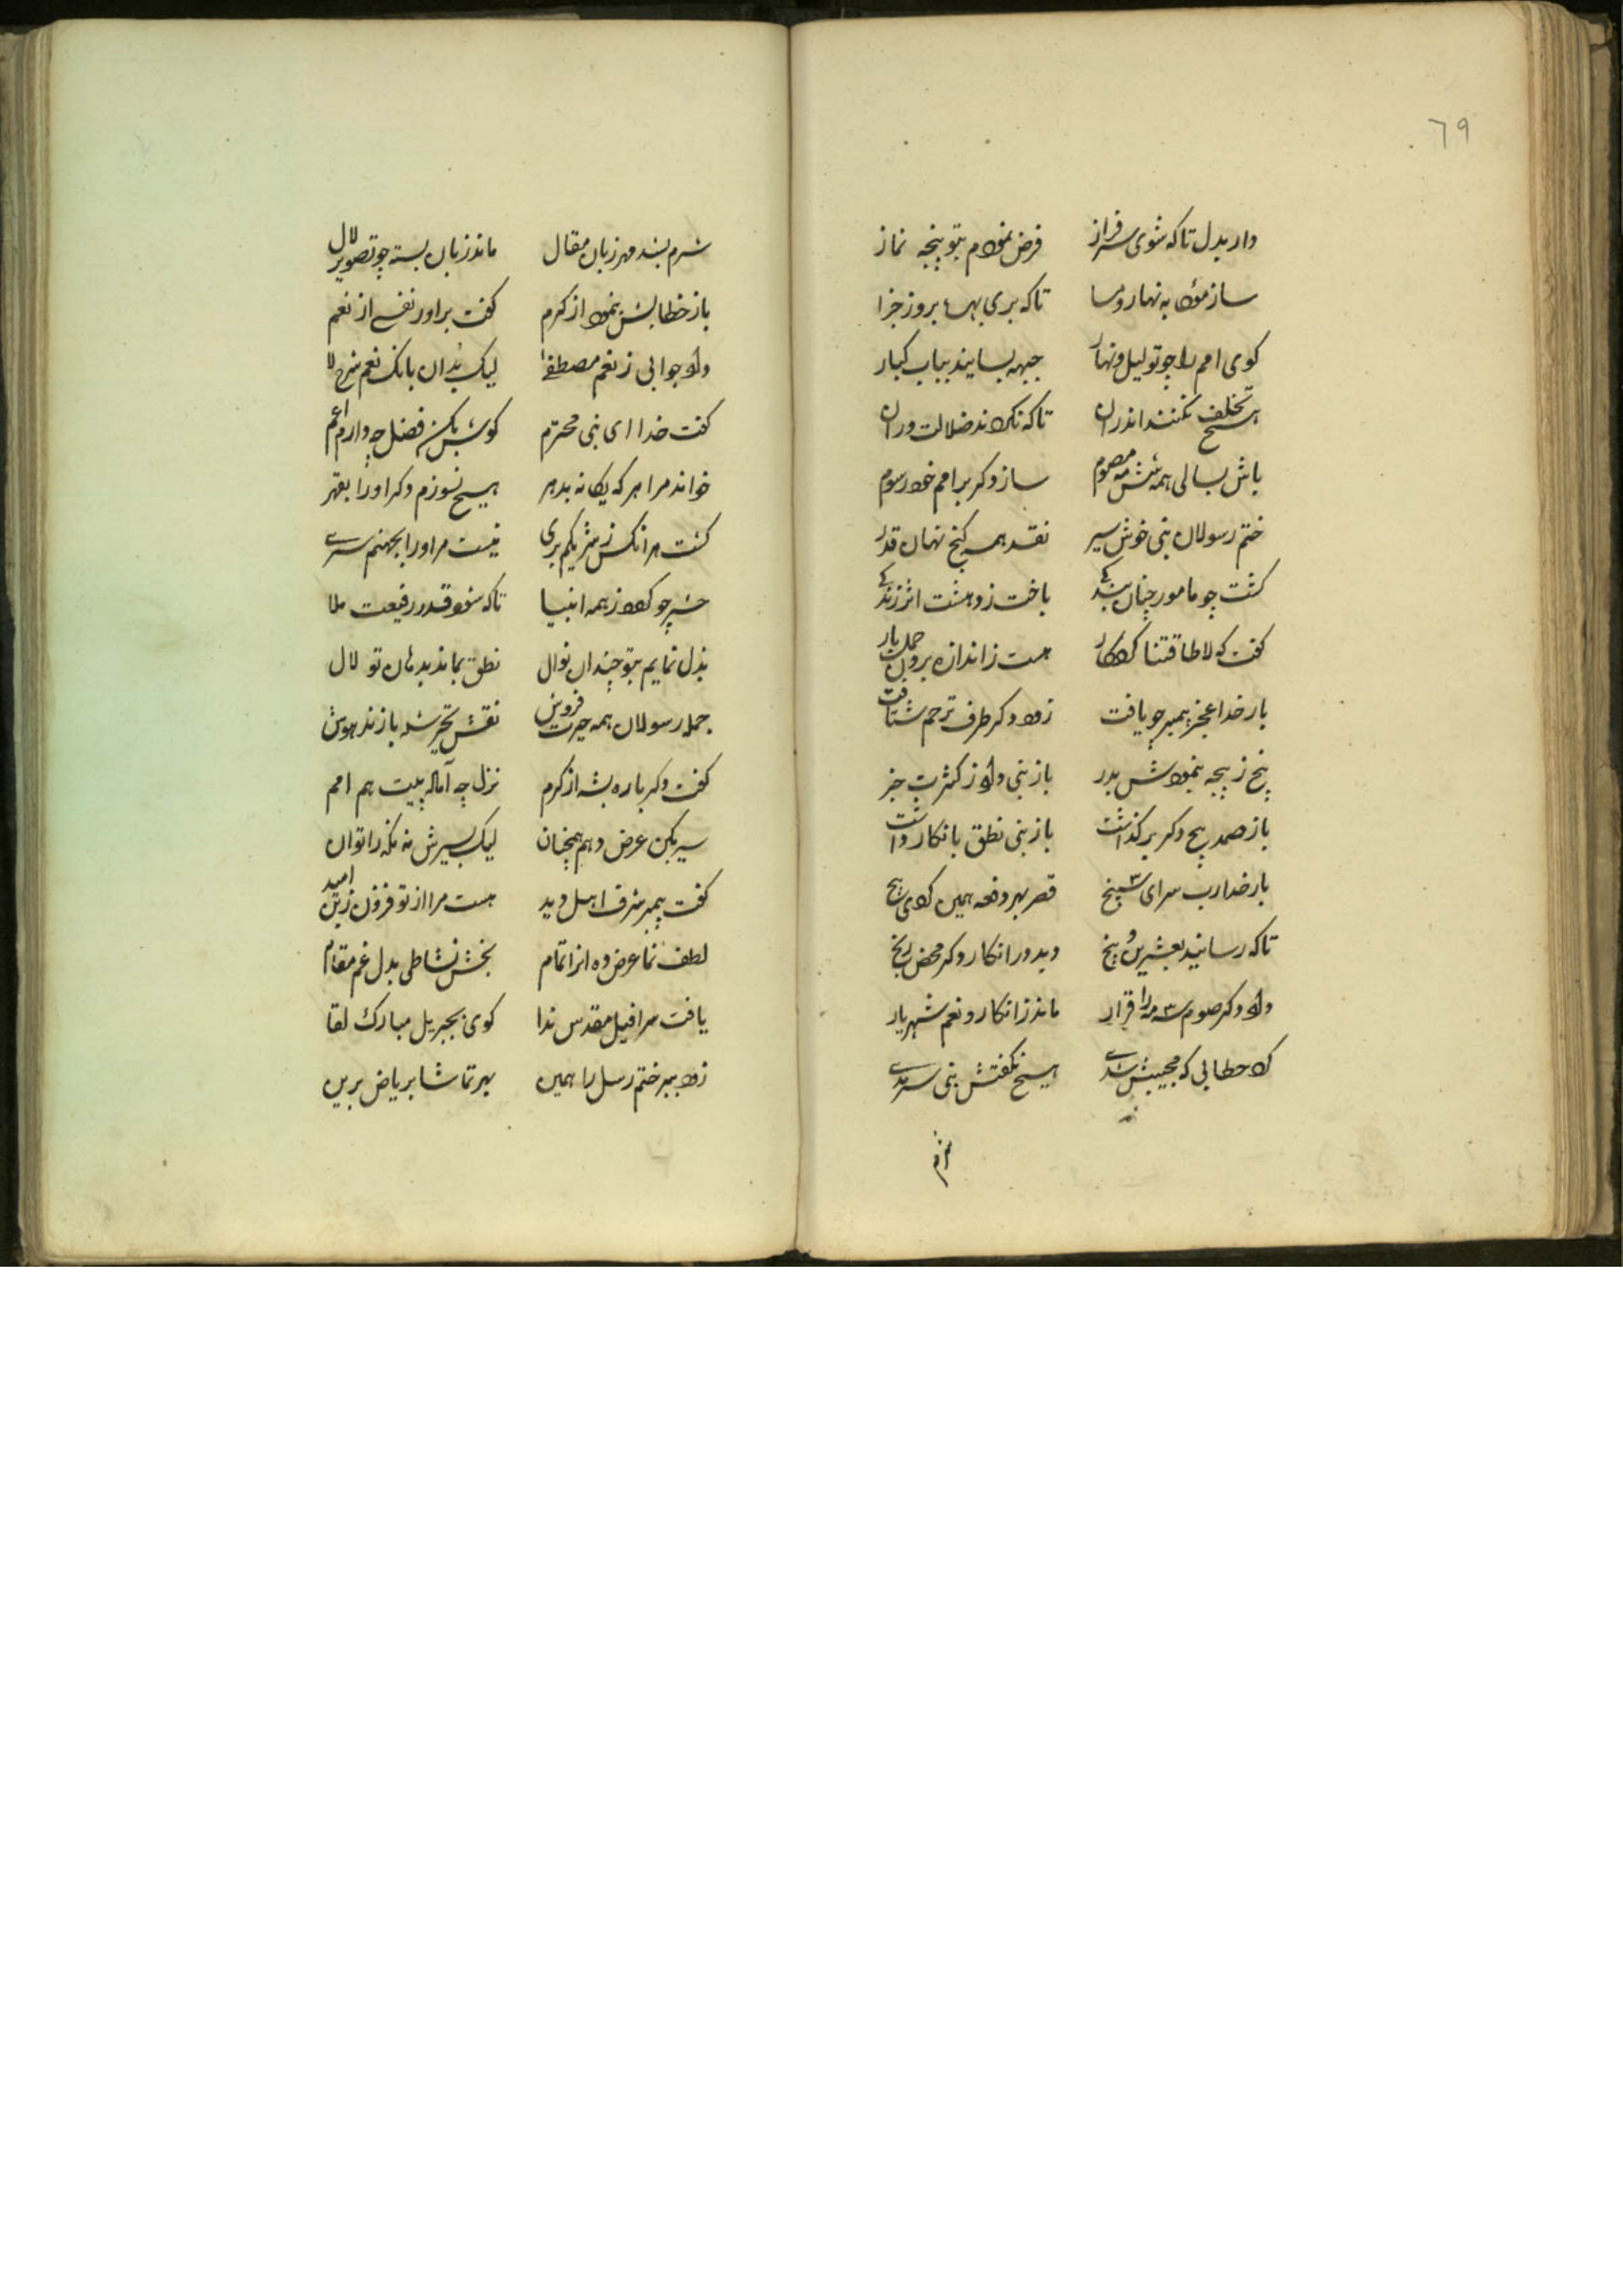 ٦٩
دار بدل تا که شوی سرفراز فرض نمودم بتو پنجه نماز
ساز مؤدا به نهار و مسا تا که بری بهره بروز جزا
کوی امم را چو تو لیل و نهار جبهه بسایند بباب کبار
هیچ تخلف نکنند اندران تا که نکردند ضلالت وران
باش بسالی همه شش مه صوم ساز دکر بر امم خود رسوم
ختم رسولان نبی خوش سیر نقد همه کنج نهان قدر
کشت چو مامور چنان بندکی باخت زدهشت اثر زندکی
کفت که لا طاقتنا کردکار هست ز اندازه برون حمل بار
بار خدا عجز پیمبر چو یافت زود دکر طرف ترحم شتافت
پنج ز پنجه بنمودش بدر باز نبی داد ز کثرت خبر
باز صمد پنج دکر برکذاشت باز نبی نطق بانکار داشت
بار خدا رب سرای سپنج قصر بهر دفعه همین کرد پنج
تا که رسانید بعشرین و پنج دید ورا نکار دکر محض رنج
داد دکر صوم سه مه را قرار ماند ز انکار و نعم شهریار
کرد خطابی که مجیبش شدی هیچ نکفتش نبی سرمدی
شرم
شرم بشد مهر زبان مقال ماند زبان بسته چو تصویر لال
باز خطابش بنمود از کرم کفت براور نفسی از نعم
داد جوابی ز نعم مصطفی لیک بدان بانک نعم شرح لا
کفت خدا ای نبی محترم کوش بکن فضل چه دارم اعم
خواند مرا هر که یکانه بدهر هیچ نسوزم دکر او را بقهر
کشت هر انکس ز شریکم بری نیست مر او را بجهنم سری
حشر چو کردد ز همه انبیا تا که شود قدر رفیعت ملا
بذل نمایم بتو چندان نوال نطق بماند بدهان تو لال
جمله رسولان همه حیرت فروش نقش تحیر شده بازند هوش
کفت دکر باره بشه از کرم نزل چه آماله پیت هم امم
سیر بکن عرض دهم همچنان لیک بسیرش مه مکه را توان
کفت پیمبر شرف اهل دید هست مرا از تو فزون زین امید
لطف نما عرض ده انرا تمام بخش نشاطی بدل غم مقام
یافت سرافیل مقدس ندا کوی بجبریل مبارک لقا
زود ببر ختم رسل را همین بهر تماشا بریاض برین